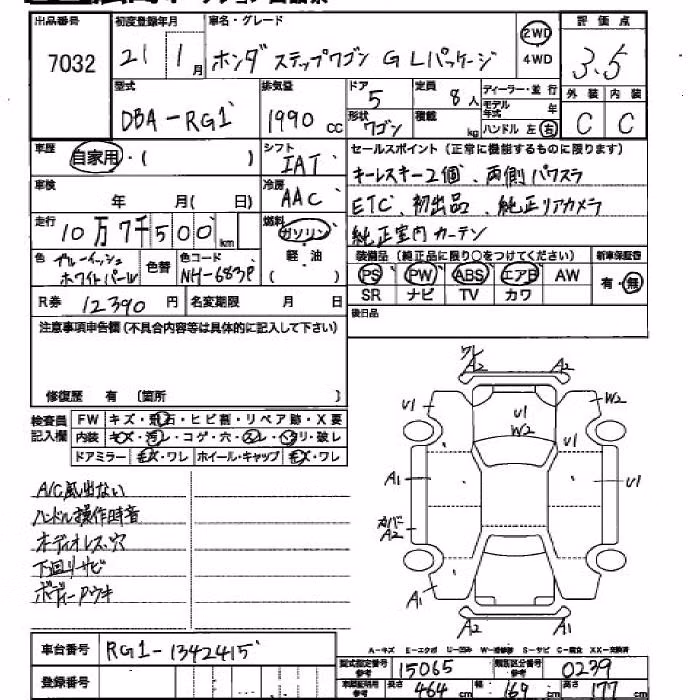 出品番号 初度登録年月 車名・グレード 評価点
7032 21 1月 ホンダ ステップワゴン G Lパッケージ 2WD 4WD 3.5
型式 排気量 ドア 定員 ディーラー・並行 外装 内装
DBA-RG1 1990cc 5 8人 モデル年式 年 C C
形状 ワゴン 積載 kg ハンドル 左 右
車歴 自家用・( ) シフト IAT セールスポイント(正常に機能するものに限ります)
キーレスキー2個、両側パワスラ
車検 年 月(日) 冷房 AAC
ETC、初出品、純正リアカメラ
走行 10万7千500km 燃料 ガソリン 軽油 ( )
純正室内カーテン
色 ブルーイッシュホワイトパール 色替 色コード NH-683P
装備品(純正品に限り○をつけてください) 新車保証書
PS PW ABS エアB AW 有・無
SR ナビ TV カワ
R券 12390円 名変期限 月 日
後日品
注意事項申告欄(不具合内容等は具体的に記入して下さい)
修復歴 有 〔箇所 〕
検査員記入欄 FW キズ・飛石・ヒビ割・リペア跡・X要
内装 キズ・汚レ・コゲ・穴・スレ・ヘタリ・破レ
ドアミラー キズ・ワレ ホイール・キャップ キズ・ワレ
ワレ A2 A2
U1 U1 W2 W2
U1
A1 U1
A2
A1 A1
A2 A1
A/C風出ない
ハンドル操作時音
オーディオレス、穴
下回りサビ
ボディーアウキ
A-キズ E-エクボ U-凹み W-補修跡 S-サビ C-腐食 XX-交換済
車台番号 RG1-1342415
型式指定番号 参考 15065 類別区分番号 参考 0239
登録番号
車検証明用 参考 長さ 464cm 幅 169cm 高さ 177cm